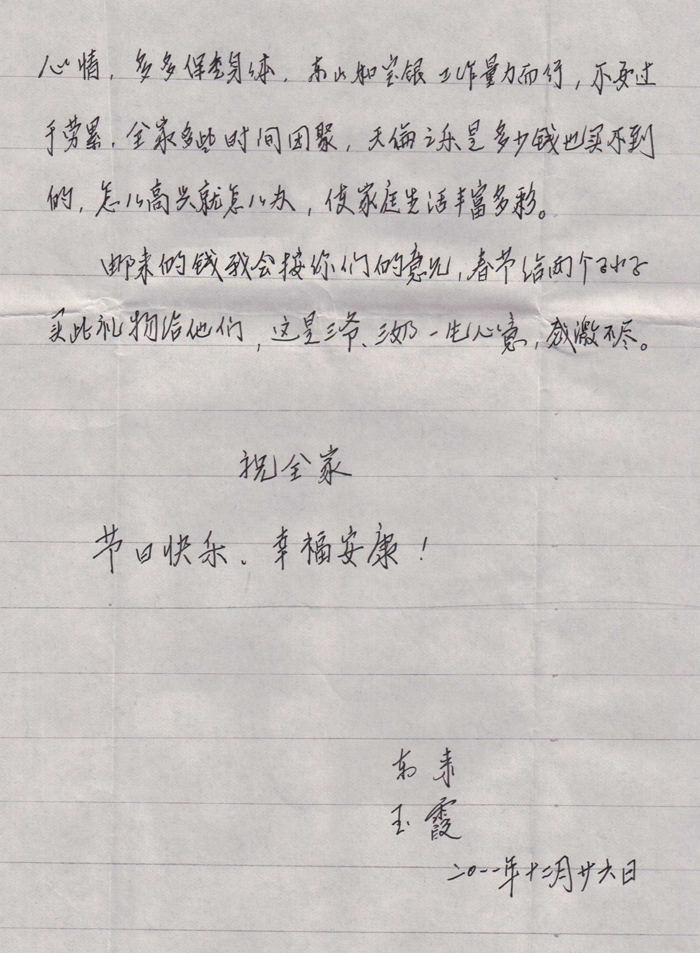 心情，多多保重身体，东山和宝银工作量力而行，不要过
于劳累，全家多些时间团聚，天伦之乐是多少钱也买不到
的，怎么高兴就怎么办，使家庭生活丰富多彩。
邮来的钱我会按你们的意见，春节给两个孙子
买些礼物给他们，这是三爷、三奶一生心意，感激不尽。
祝全家
节日快乐、幸福安康！
东来
玉霞
二〇一一年十二月廿六日